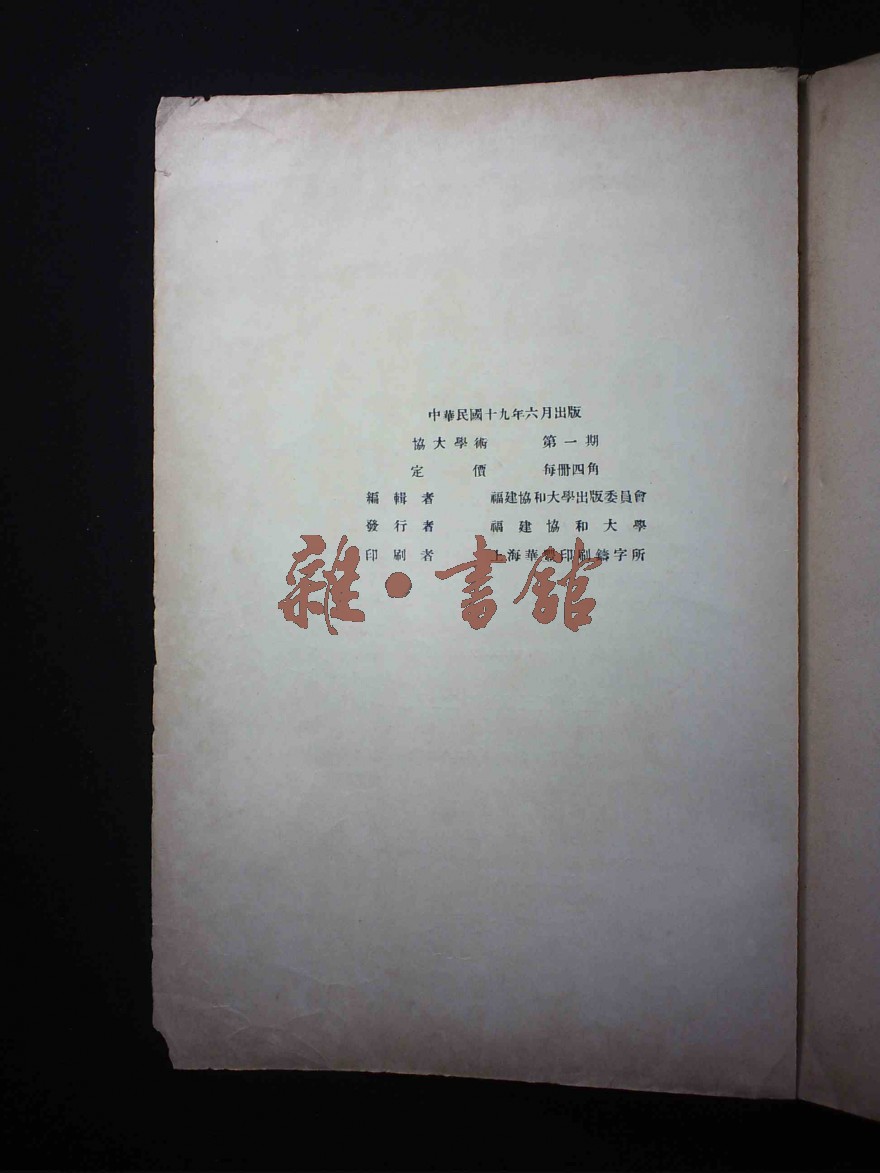 中華民國十九年六月出版
協大學術 第一期
定價 每冊四角
編輯者 福建協和大學出版委員會
發行者 福建協和大學
印刷者 上海華豐印刷鑄字所
雜·書館